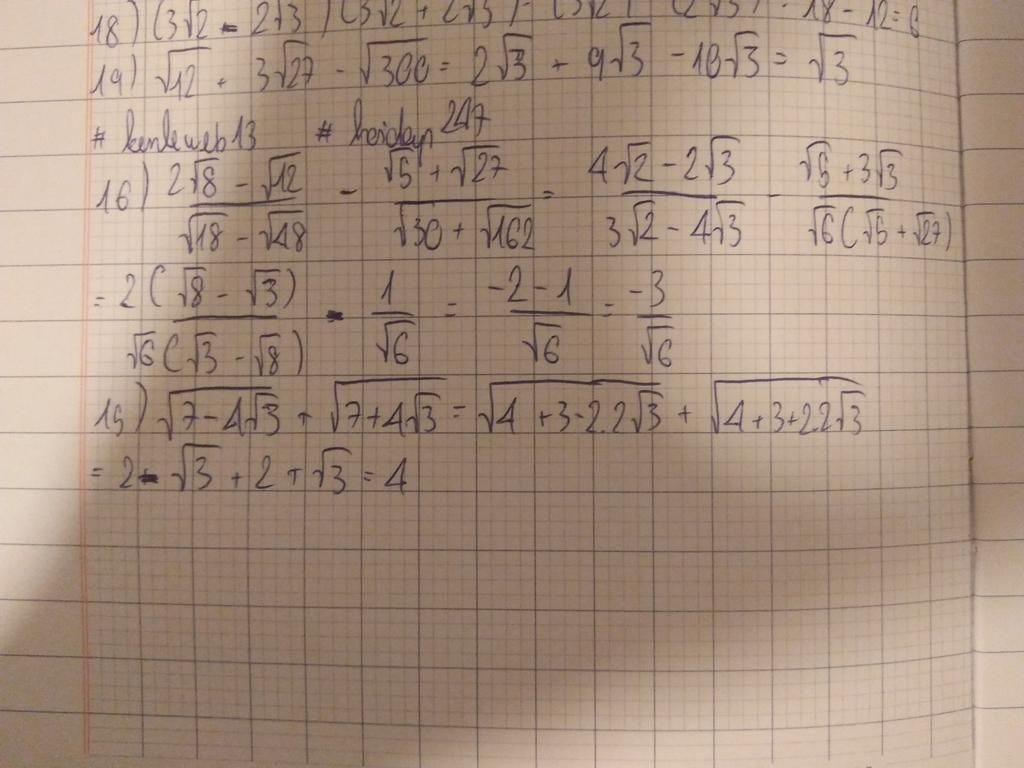 18) (3√2 - 2√3) (3√2 + 2√3) = (3√2)² - (2√3)² = 18 - 12 = 6
19) √12 + 3√27 - √300 = 2√3 + 9√3 - 10√3 = √3
# kenleweb13 # hoidap247
16) (2√8 - √12)/(√18 - √48) - (√5 + √27)/(√30 + √162) = (4√2 - 2√3)/(3√2 - 4√3) - (√5 + 3√3)/(√6(√5 + √27))
= 2(√8 - √3)/(√6(√3 - √8)) - 1/√6 = (-2 - 1)/√6 = -3/√6
15) √(7 - 4√3) + √(7 + 4√3) = √(4 + 3 - 2.2√3) + √(4 + 3 + 2.2√3)
= 2 - √3 + 2 + √3 = 4